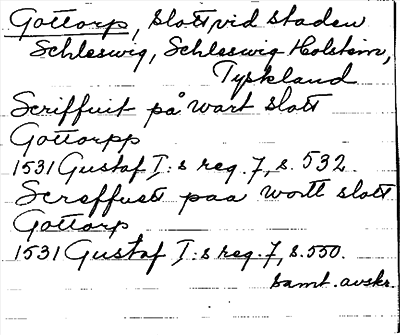 Gottorp, slott vid staden
Schleswig, Schleswig Holstein,
Tyskland
Scriffuit på wart slott
Gottorpp
1531 Gustaf I:s reg. 7, s. 532
Screffuet paa wortt slott
Gottorp
1531 Gustaf I:s reg. 7, s. 550.
samt. avskr.